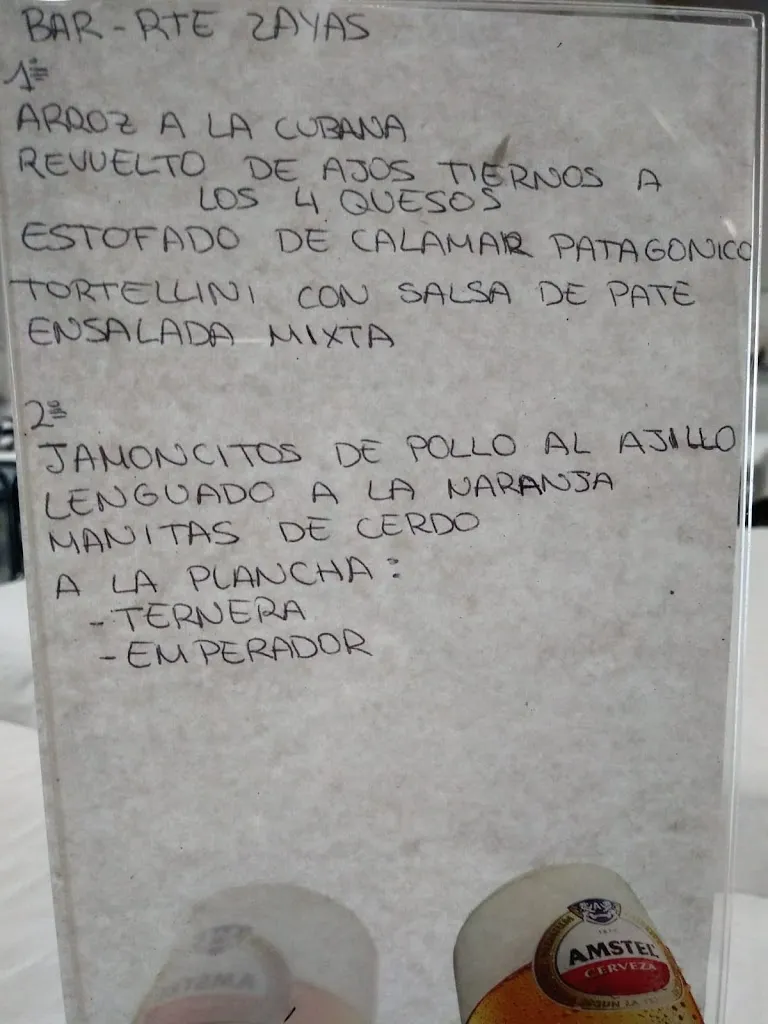 BAR-RTE ZAYAS
1º
ARROZ A LA CUBANA
REVUELTO DE AJOS TIERNOS A
LOS 4 QUESOS
ESTOFADO DE CALAMAR PATAGONICO
TORTELLINI CON SALSA DE PATE
ENSALADA MIXTA
2º
JAMONCITOS DE POLLO AL AJILLO
LENGUADO A LA NARANJA
MANITAS DE CERDO
A LA PLANCHA:
-TERNERA
-EMPERADOR
AMSTEL
CERVEZA